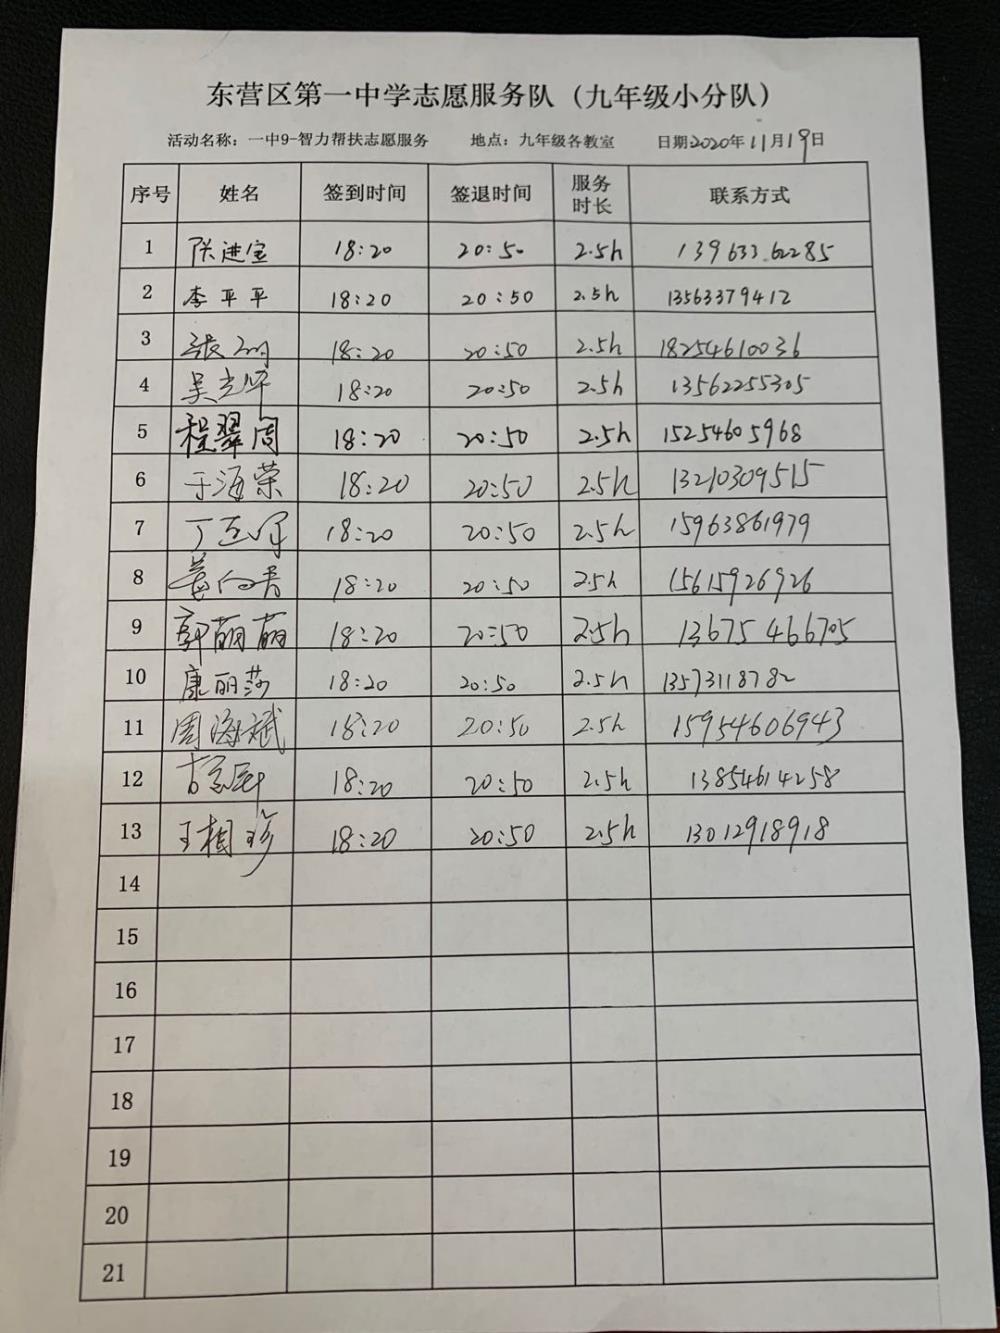 东营区第一中学志愿服务队（九年级小分队）
活动名称：一中9-智力帮扶志愿服务 地点：九年级各教室 日期2020年11月19日
序号 姓名 签到时间 签退时间 服务时长 联系方式
1 张进宝 18:20 20:50 2.5h 13963362285
2 李平平 18:20 20:50 2.5h 13563379412
3 张 18:20 20:50 2.5h 18254610036
4 吴 18:20 20:50 2.5h 13562255305
5 程翠周 18:20 20:50 2.5h 15254605968
6 于海荣 18:20 20:50 2.5h 13210309515
7 丁 18:20 20:50 2.5h 15963861979
8 18:20 20:50 2.5h 15615926926
9 郭丽丽 18:20 20:50 2.5h 13675466705
10 康丽莎 18:20 20:50 2.5h 13573118782
11 周海斌 18:20 20:50 2.5h 15954606943
12 18:20 20:50 2.5h 13854614258
13 王相珍 18:20 20:50 2.5h 13012918918
14
15
16
17
18
19
20
21